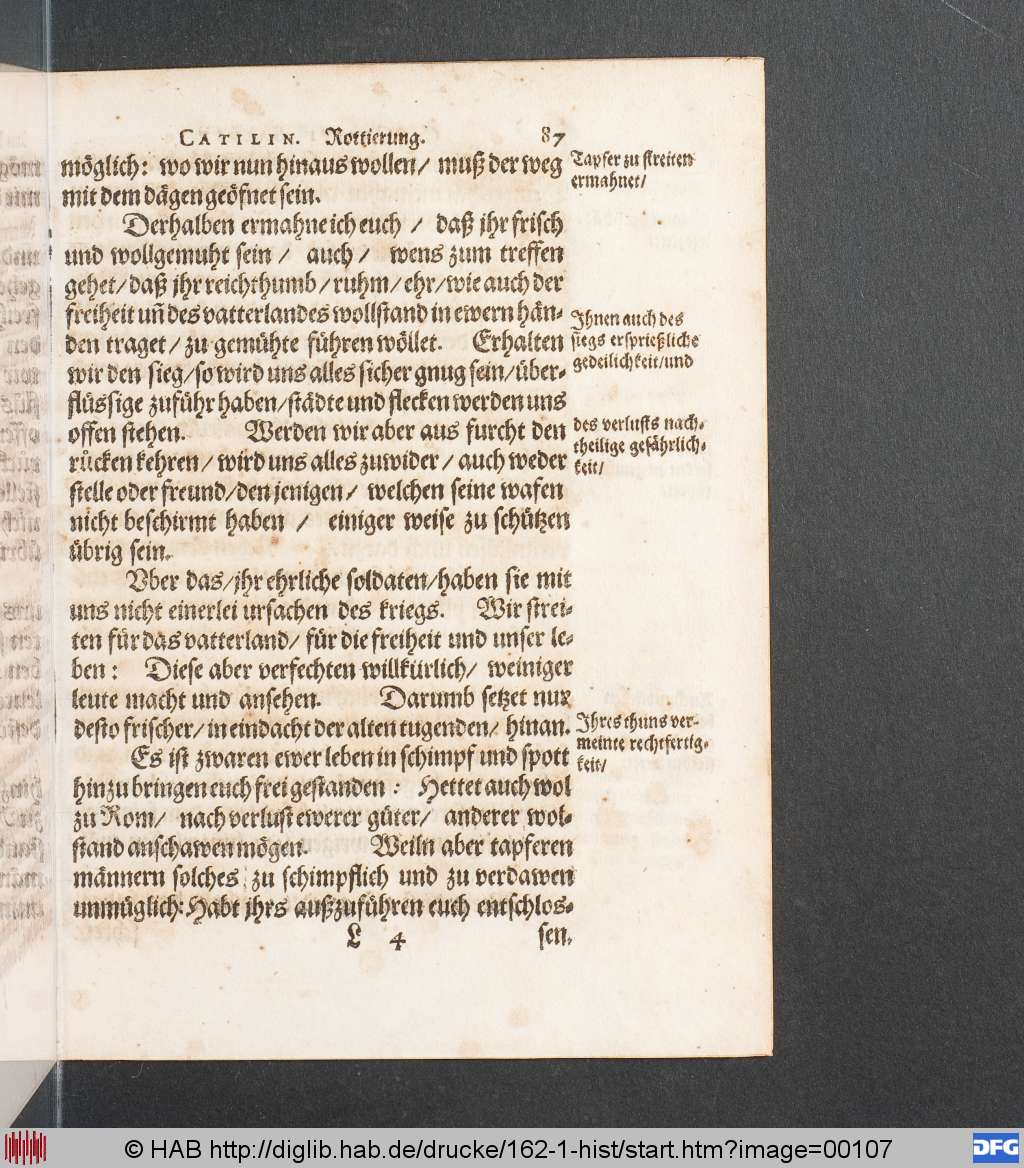 CATILIN. Rottierung. 87
möglich: wo wir nun hinaus wollen/ muß der weg
mit dem dägen geöfnet sein.
Derhalben ermahne ich euch / daß jhr frisch
und wollgemuht sein / auch / wens zum treffen
gehet/ daß jhr reichthumb/ ruhm/ ehr/ wie auch der
freiheit uñ des vatterlandes wollstand in ewern hän-
den traget/ zu gemühte führen wöllet. Erhalten
wir den sieg/ so wird uns alles sicher gnug sein/ über-
flüssige zuführ haben/ städte und flecken werden uns
offen stehen. Werden wir aber aus furcht den
rücken kehren/ wird uns alles zuwider/ auch weder
stelle oder freund/ den jenigen/ welchen seine wafen
nicht beschirmt haben / einiger weise zu schützen
übrig sein.
Vber das/ jhr ehrliche soldaten/ haben sie mit
uns nicht einerlei ursachen des kriegs. Wir strei-
ten für das vatterland/ für die freiheit und unser le-
ben: Diese aber verfechten willkürlich/ weiniger
leute macht und ansehen. Darumb setzet nur
desto frischer/ in eindacht der alten tugenden/ hinan.
Es ist zwaren ewer leben in schimpf und spott
hinzubringen euch frei gestanden: Hettet auch wol
zu Rom/ nach verlust ewerer güter/ anderer wol-
stand anschawen mögen. Weiln aber tapferen
männern solches zu schimpflich und zu verdawen
unmüglich: Habt jhrs außzuführen euch entschlos-
L 4 sen.
Tapfer zu streiten
ermahnet/
Jhnen auch des
siegs ersprießliche
gedeilichkeit/ und
des verlusts nach-
theilige gefährlich-
keit/
Jhres thuns ver-
meinte rechtfertig-
keit/
© HAB http://diglib.hab.de/drucke/162-1-hist/start.htm?image=00107
DFG